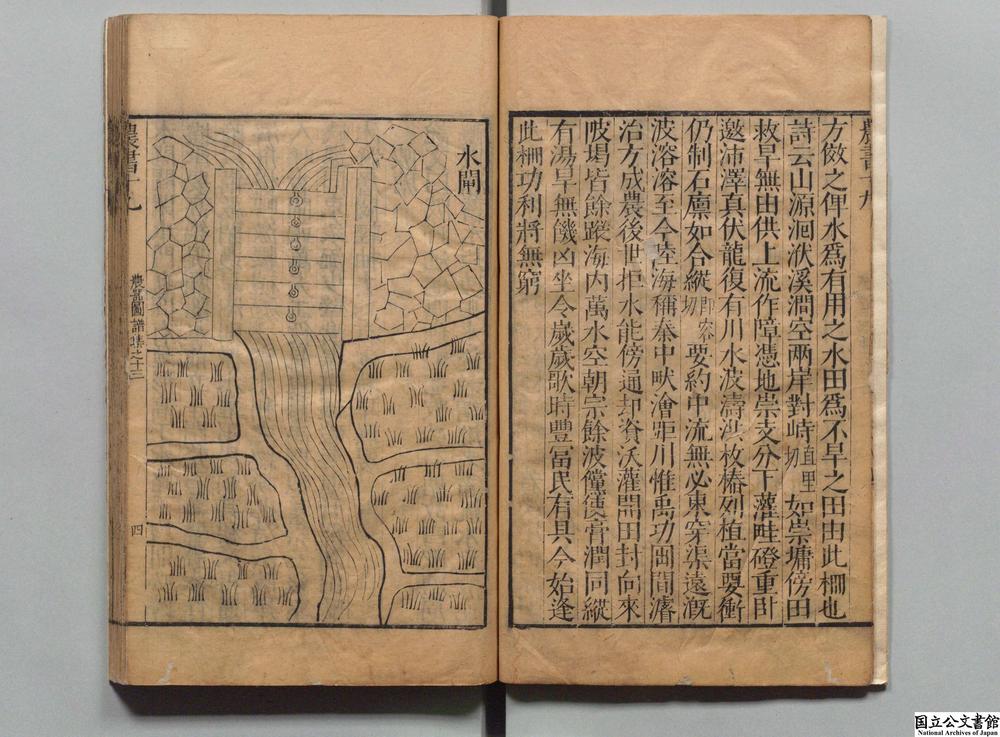 方倣之俾水爲有用之水田爲不旱之田由此柵也
詩云山源洄洑溪澗空兩岸對峙直里切如崇墉傍田
救旱無由供上流作障憑地崇支分下灌畦磴重臥
邀沛澤真伏龍復有川水波濤洪枚樁列植當要衝
仍制石囷如合縱即容切要約中流無必東穿渠遠漑
波溶溶至今陸海稱秦中畎澮距川惟禹功田間濬
治方成農後世拒水能傍通却資沃灌開田封向來
陂堨皆餘蹤海内萬水空朝宗餘波儻得膏潤同縱
有湯旱無饑凶坐令歲歲歌時豐冨民有具今始逢
此柵功利將無窮
水閘
農書十九
農器圖譜集之十三
四